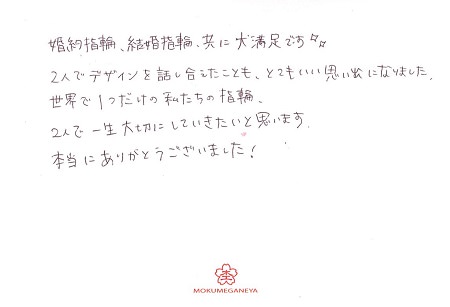 婚約指輪、結婚指輪、共に大満足です✨
2人でデザインを話し合えたことも、とてもいい思い出になりました。
世界で1つだけの私たちの指輪、
2人で一生大切にしていきたいと思います。
本当にありがとうございました!
MOKUMEGANEYA